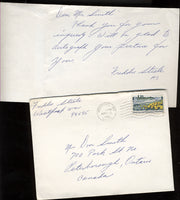 Dear Mr. Smith
Thank you for your
inquiry. Will be glad to
autograph your picture for
you.
Freddie Steele
Freddie Steele
Westport Wn
98595
Mr Don Smith
Park St No
Peterborough, Ontario
Canada